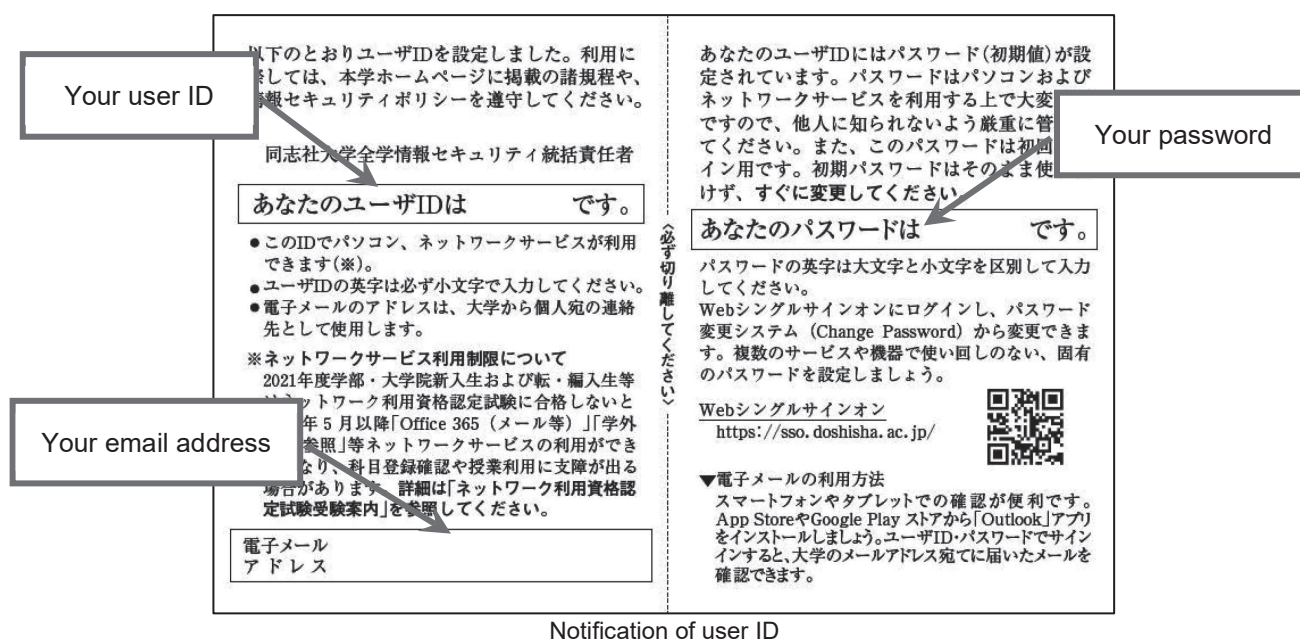 Your user ID
以下のとおりユーザIDを設定しました。利用に
しては、本学ホームページに掲載の諸規程や、
報セキュリティポリシーを遵守してください。
同志社大学全学情報セキュリティ統括責任者
あなたのユーザIDは です。
●このIDでパソコン、ネットワークサービスが利用
できます(※)。
●ユーザIDの英字は必ず小文字で入力してください。
●電子メールのアドレスは、大学から個人宛の連絡
先として使用します。
※ネットワークサービス利用制限について
2021年度学部・大学院新入生および転・編入生等
ネットワーク利用資格認定試験に合格しないと
年5月以降「Office 365(メール等)」「学外
参照」等ネットワークサービスの利用ができ
なり、科目登録確認や授業利用に支障が出る
場合があります 詳細は「ネットワーク利用資格認
定試験受験案内」を参照してください。
Your email address
電子メール
アドレス
〈必ず切り離してください〉
あなたのユーザIDにはパスワード(初期値)が設
定されています。パスワードはパソコンおよび
ネットワークサービスを利用する上で大変
ですので、他人に知られないよう厳重に管
てください。また、このパスワードは初回
イン用です。初期パスワードはそのまま使
けず、すぐに変更してください。
Your password
あなたのパスワードは です。
パスワードの英字は大文字と小文字を区別して入力
してください。
Webシングルサインオンにログインし、パスワード
変更システム(Change Password)から変更できま
す。複数のサービスや機器で使い回しのない、固有
のパスワードを設定しましょう。
Webシングルサインオン
https://sso.doshisha.ac.jp/
▼電子メールの利用方法
スマートフォンやタブレットでの確認が便利です。
App StoreやGoogle Play ストアから「Outlook」アプリ
をインストールしましょう。ユーザID・パスワードでサイン
インすると、大学のメールアドレス宛てに届いたメールを
確認できます。
Notification of user ID